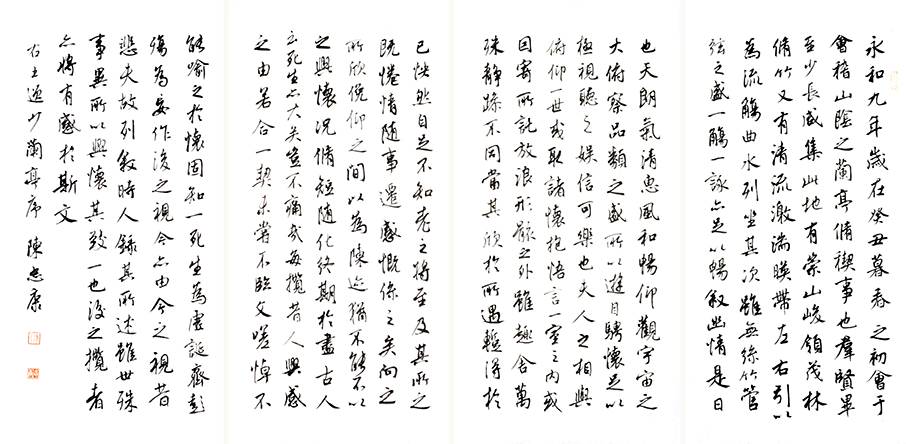 永和九年歲在癸丑暮春之初會于
會稽山陰之蘭亭脩禊事也羣賢畢
至少長咸集此地有崇山峻領茂林
脩竹又有清流激湍暎帶左右引以
為流觴曲水列坐其次雖無絲竹管
弦之盛一觴一詠亦足以暢叙幽情是日
也天朗氣清惠風和暢仰觀宇宙之
大俯察品類之盛所以遊目騁懷足以
極視聽之娛信可樂也夫人之相與
俯仰一世或取諸懷抱悟言一室之內或
因寄所託放浪形骸之外雖趣舍萬
殊靜躁不同當其欣於所遇蹔得於
己怏然自足不知老之將至及其所之
既惓情隨事遷感慨係之矣向之
所欣俛仰之間以為陳迹猶不能不以
之興懷況脩短隨化終期於盡古人
云死生亦大矣豈不痛哉每攬昔人興感
之由若合一契未嘗不臨文嗟悼不
能喻之於懷固知一死生為虛誕齊彭
殤為妄作後之視今亦由今之視昔
悲夫故列叙時人錄其所述雖世殊
事異所以興懷其致一也後之攬者
亦將有感於斯文
右王逸少蘭亭序 陳忠康